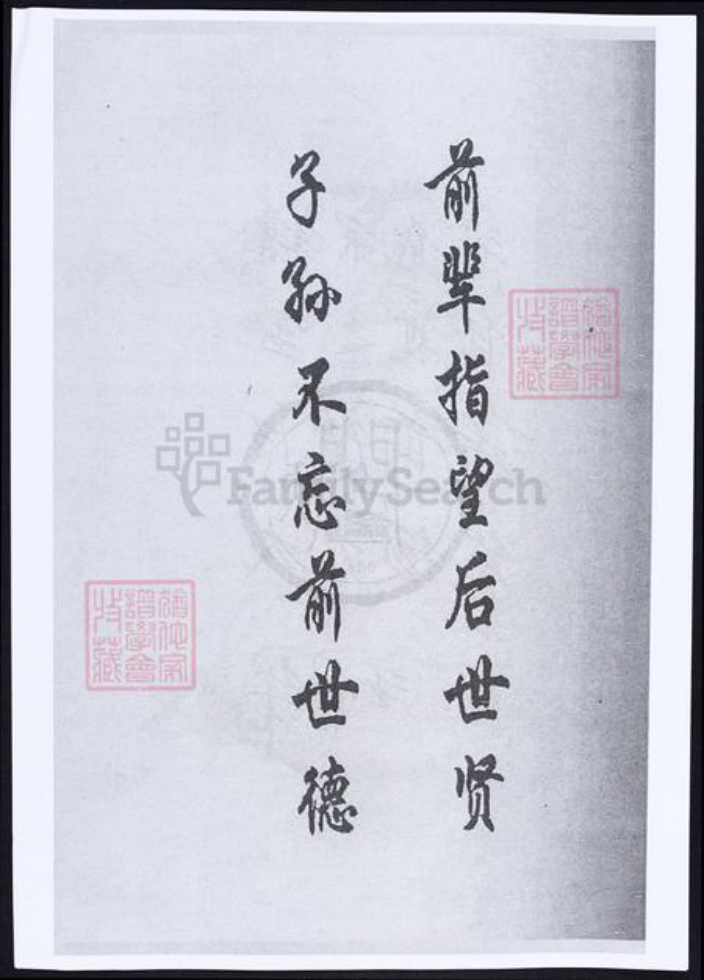 前辈指望后世贤
子孙不忘前世德
猶他家
譜學會
特藏
猶他家
譜學會
特藏
FamilySearch